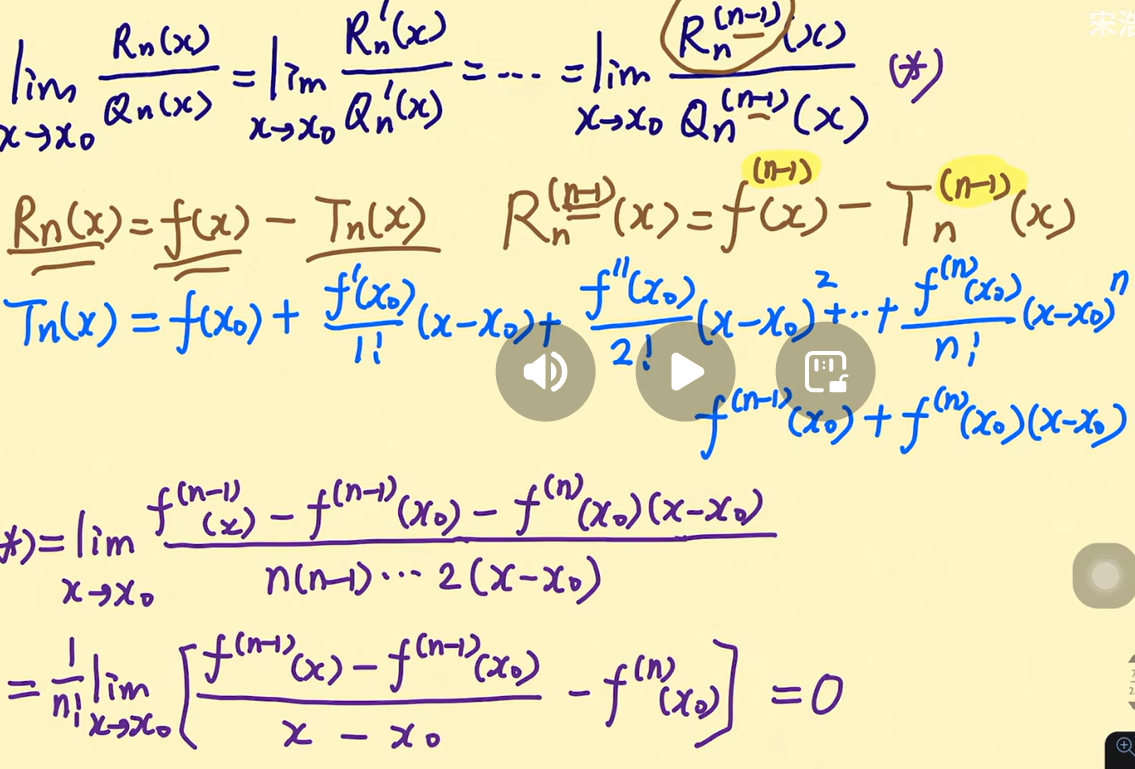 宋浩
lim_{x→x₀} Rₙ(x)/Qₙ(x) = lim_{x→x₀} Rₙ′(x)/Qₙ′(x) = ··· = lim_{x→x₀} Rₙ^{(n-1)}(x)/Qₙ^{(n-1)}(x) (*)
Rₙ(x) = f(x) − Tₙ(x) Rₙ^{(n-1)}(x) = f^{(n-1)}(x) − Tₙ^{(n-1)}(x)
Tₙ(x) = f(x₀) + f′(x₀)/1! (x−x₀) + f″(x₀)/2! (x−x₀)² + ·· + f^{(n)}(x₀)/n! (x−x₀)ⁿ
f^{(n-1)}(x₀) + f^{(n)}(x₀)(x−x₀)
*) = lim_{x→x₀} [f^{(n-1)}(x) − f^{(n-1)}(x₀) − f^{(n)}(x₀)(x−x₀)] / [n(n-1)···2(x−x₀)]
= 1/n! lim_{x→x₀} [ (f^{(n-1)}(x) − f^{(n-1)}(x₀))/(x − x₀) − f^{(n)}(x₀) ] = 0